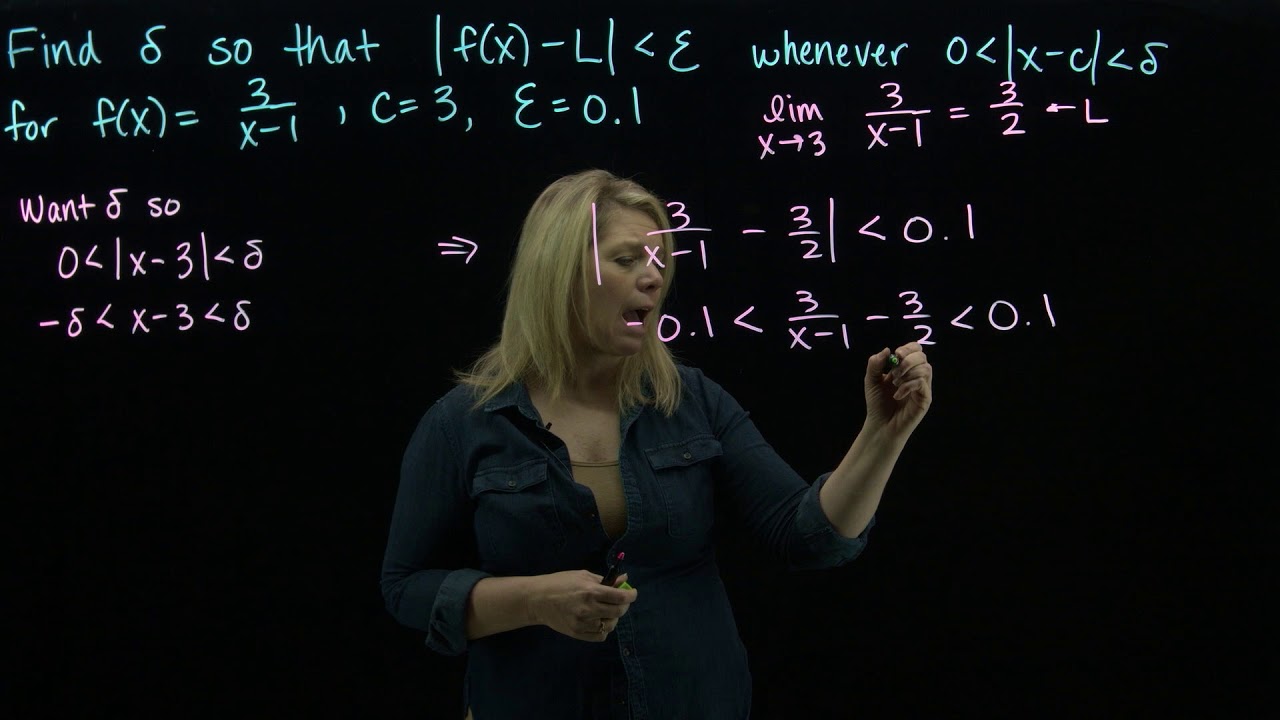 Find δ so that |f(x)-L|<ε whenever 0<|x-c|<δ
for f(x)= 3/(x-1), c=3, ε=0.1
lim x→3 3/(x-1) = 3/2 ← L
Want δ so
0<|x-3|<δ ⇒ |3/(x-1) - 3/2| < 0.1
-δ<x-3<δ
-0.1 < 3/(x-1) - 3/2 < 0.1